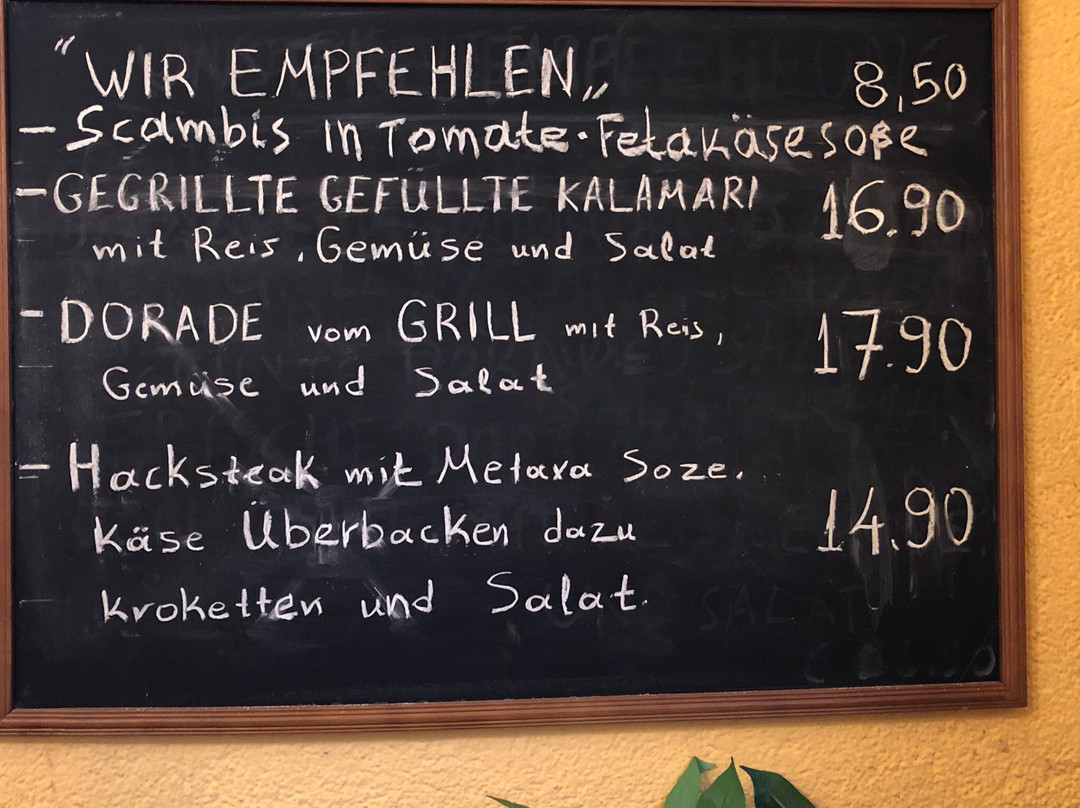 "WIR EMPFEHLEN„ 8,50
- Scambis in Tomate-Fetakäsesoße
- GEGRILLTE GEFÜLLTE KALAMARI 16.90
mit Reis, Gemüse und Salat
- DORADE vom GRILL mit Reis, 17.90
Gemüse und Salat
- Hacksteak mit Metaxa Soze.
Käse Überbacken dazu 14.90
kroketten und Salat.